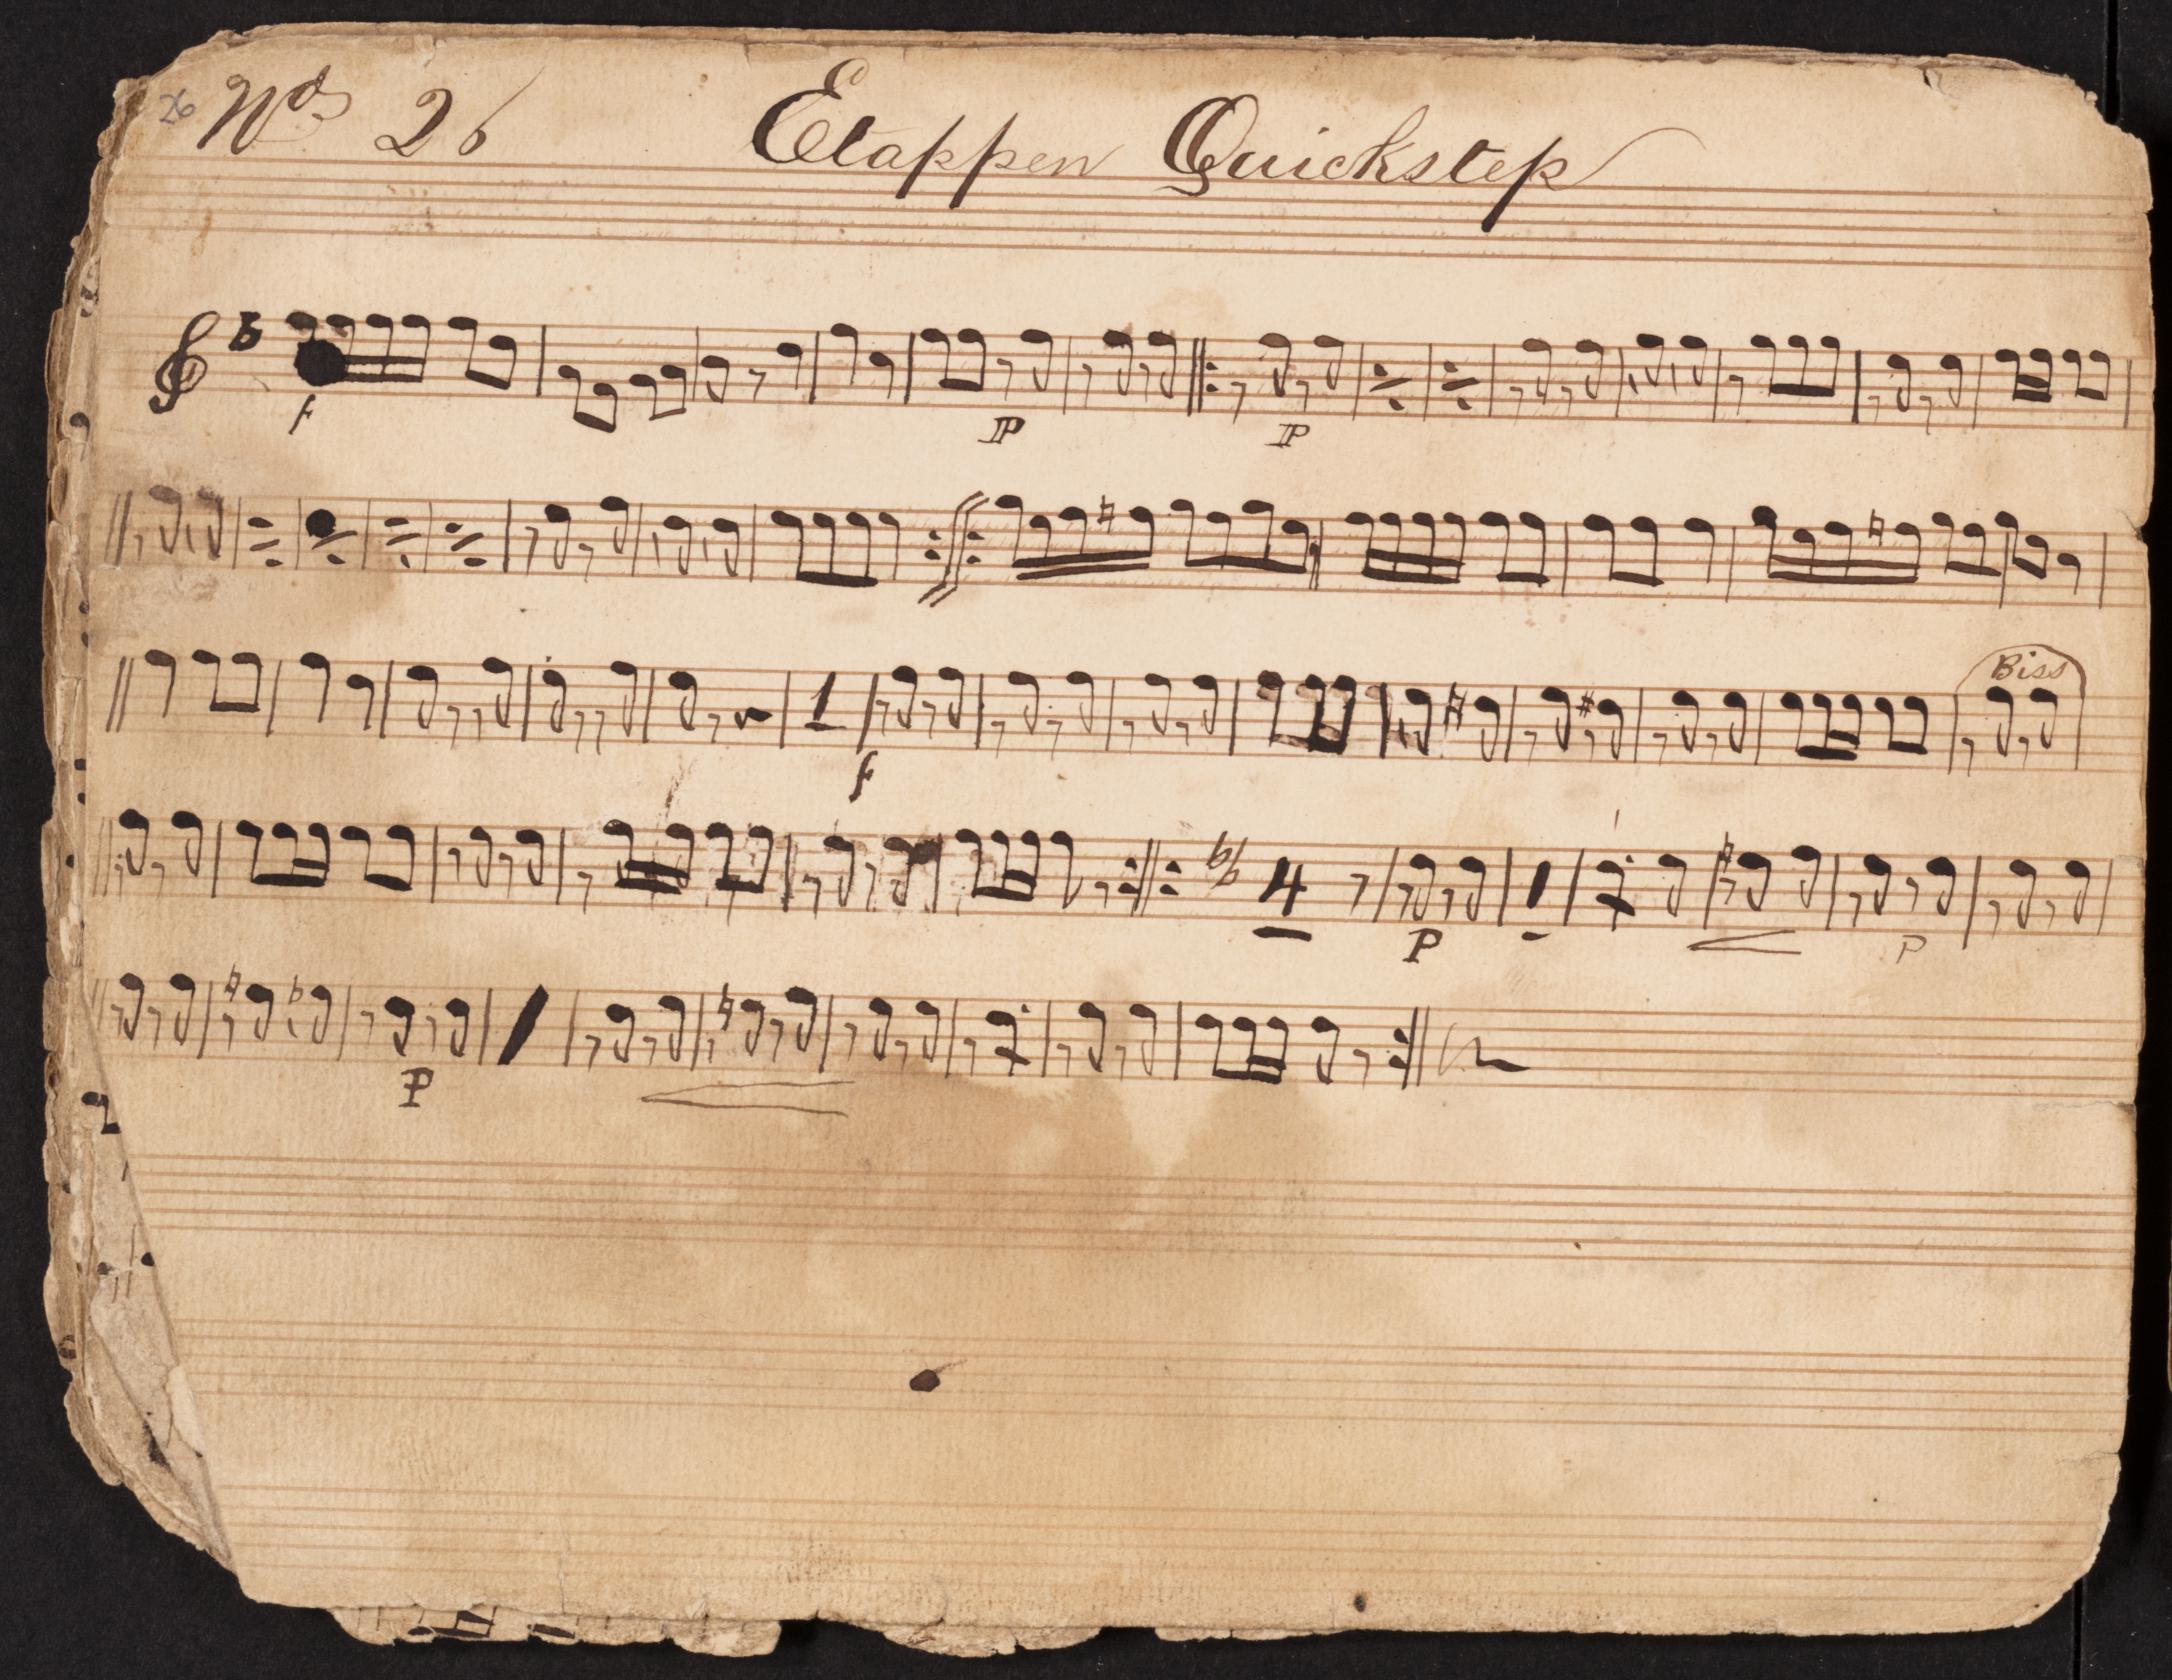 26 No 26 Etappen Quickstep
f P P
Biss
f
4 P P
P